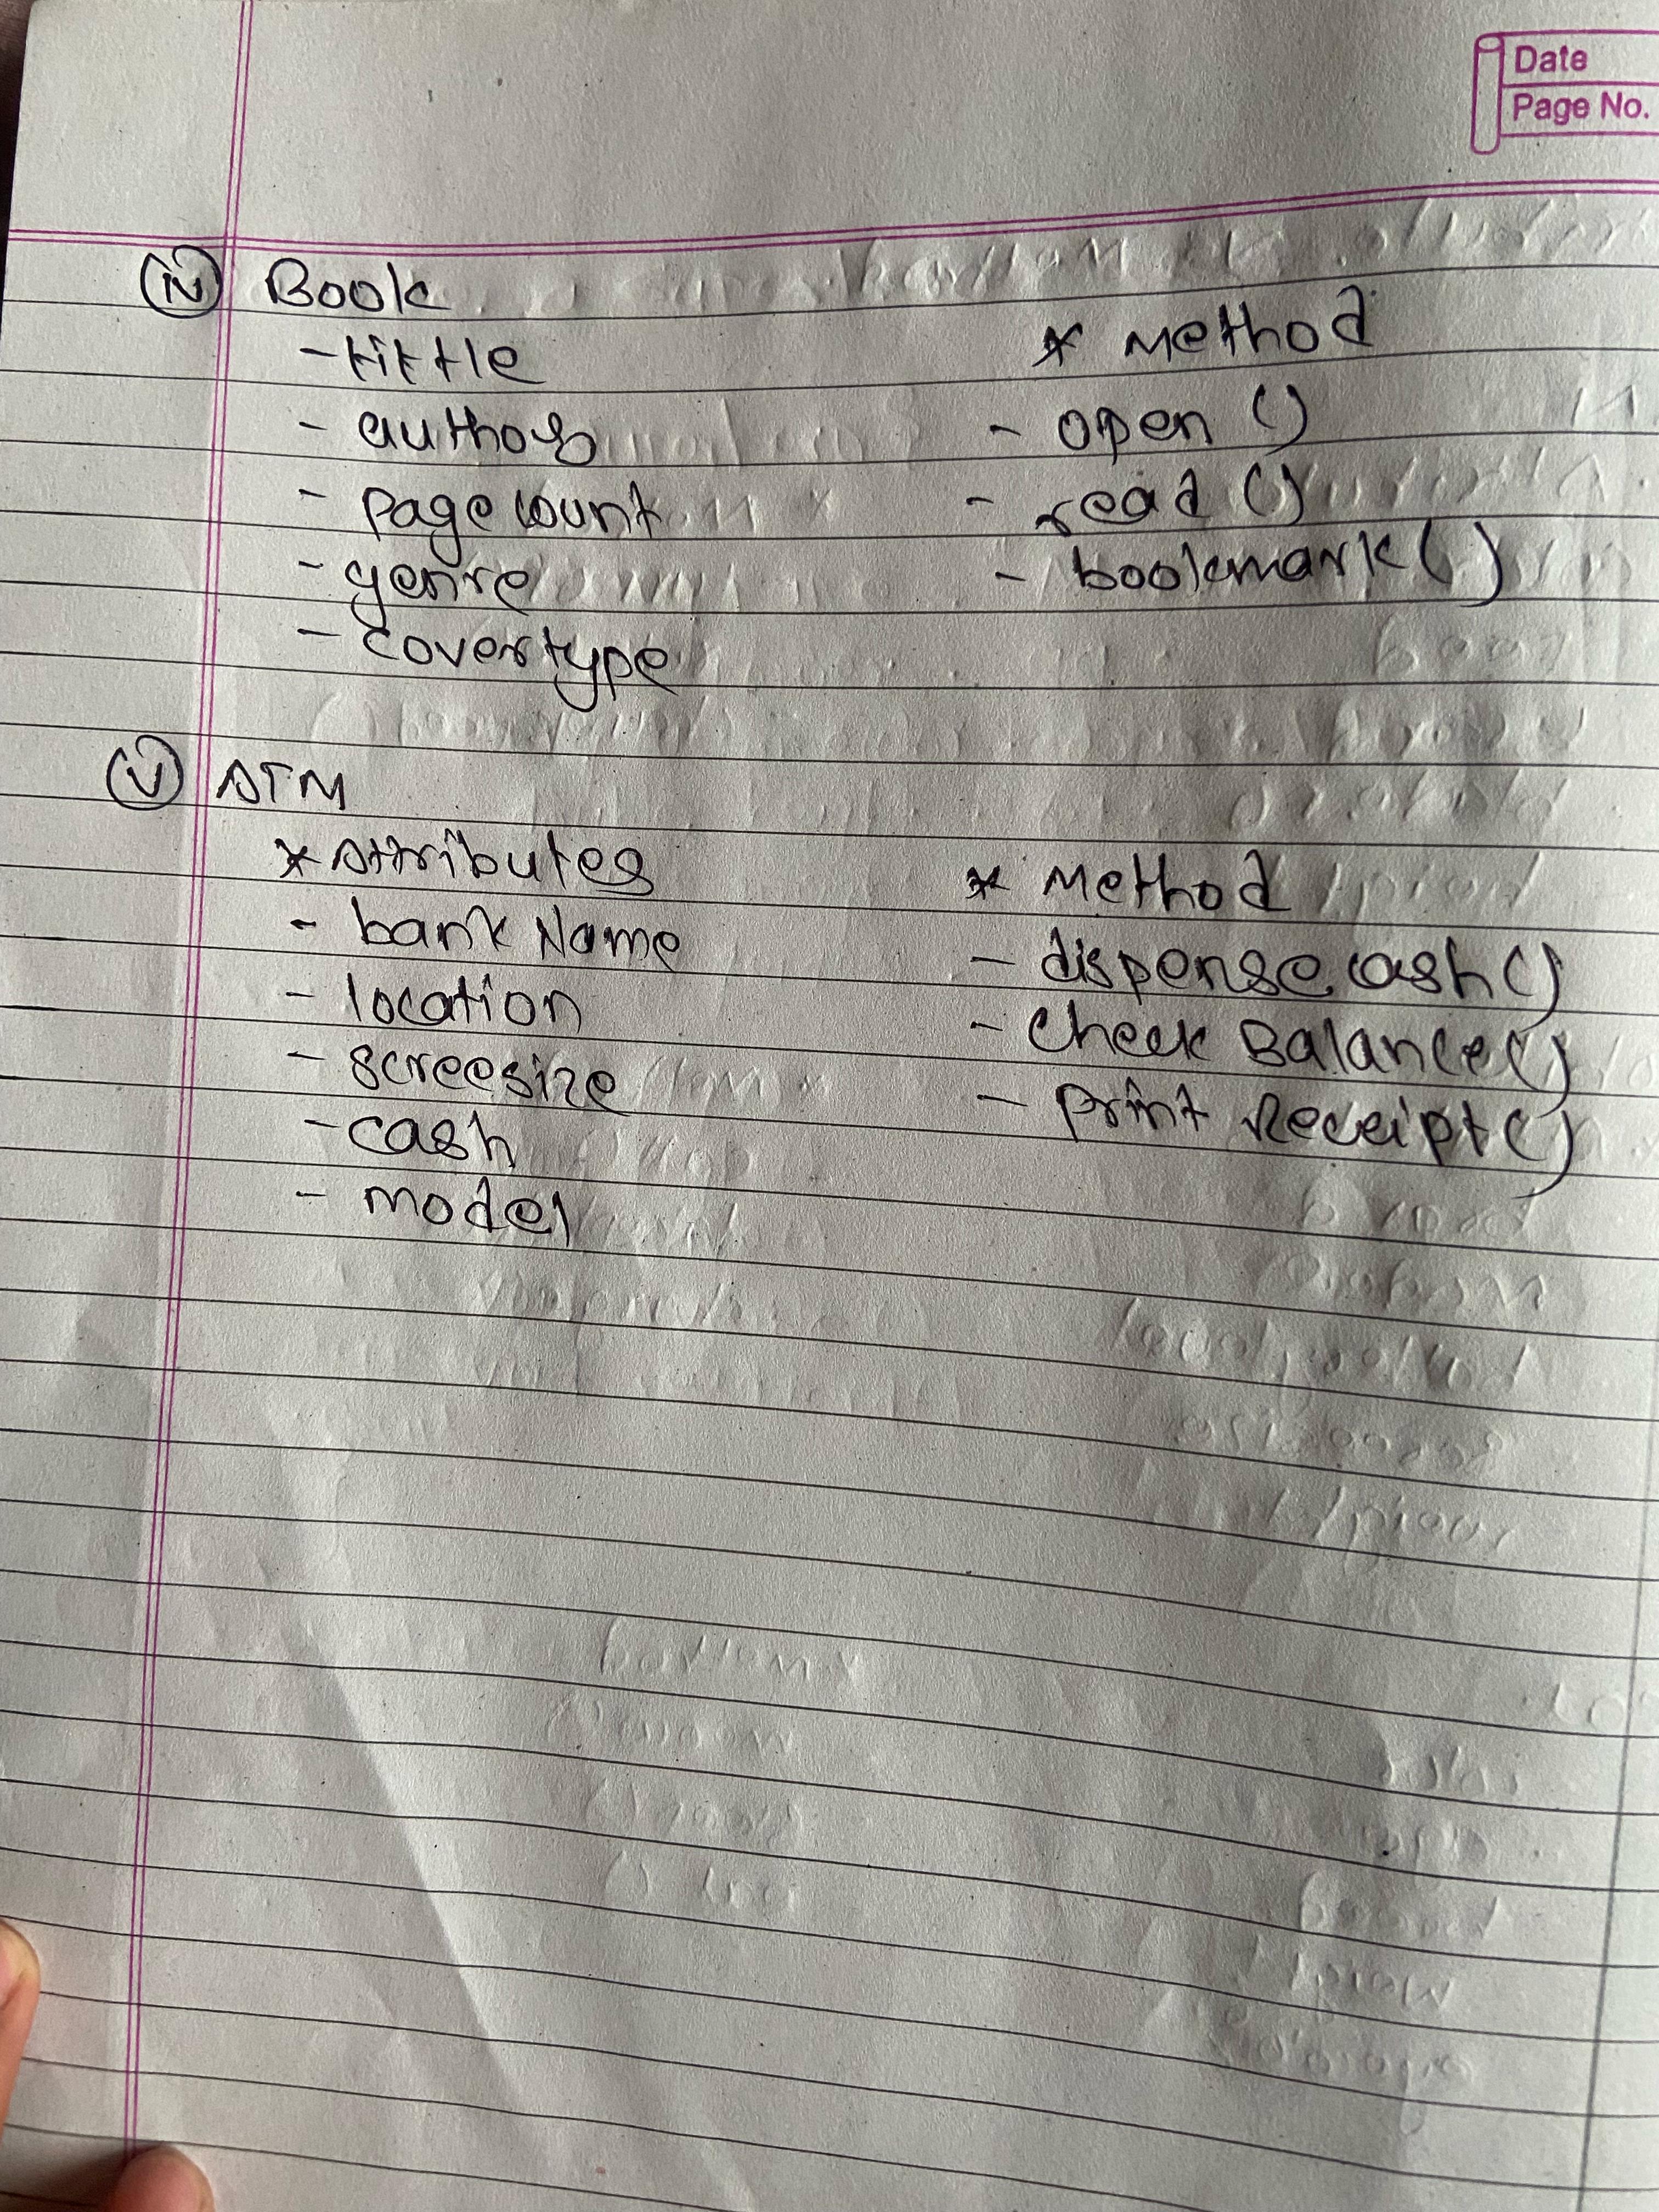 Date
Page No.
(iv) Book
- tittle
- author
- pagecount
- genre
- covertype
* Method
- open ()
- read ()
- bookmark ()
(v) ATM
* Attributes
- bank Name
- location
- screesize
- cash
- model
* Method
- dispensecash ()
- Check Balance ()
- print Receipt ()